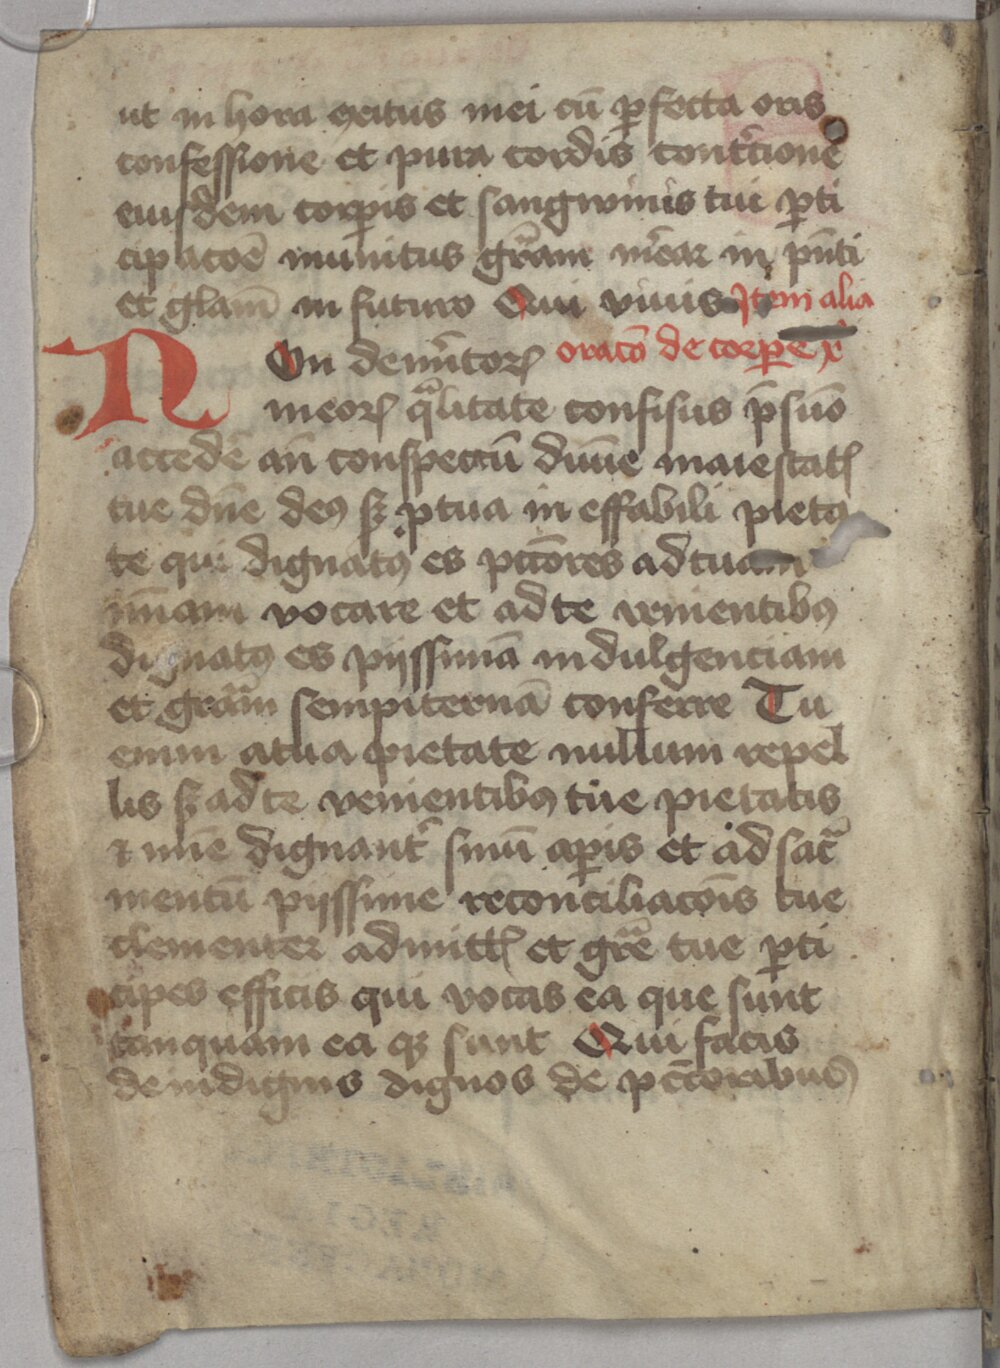 ut in hora exitus mei cū ꝑfecta oris
confessione et pura cordis contͥcione
eiusdem corꝑis et sangwinis tui ꝑti
cipacōē munitus grāam mēar in p̄nti
et glaīam in futuro Qui viuis Item alia
NOn demͥitoꝝ oracō de corꝑe xͥ
meoꝝ qͣlitate confisus p̄sūo
accedē an̄ conspectū diuīe maiestatꝭ
tue dn̄e deꝰ sꝫ ꝓ tua in effabili pieta
te qui dignatꝰ es pctōres ad tuam
mīam vocare et ad te venientibꝰ
dignatꝰ es pijssimā indulgenciam
et grāam sempiternā conferre Tu
enim a tua pietate nullum repel
lis sꝫ ad te venientibꝰ tue pietatis
⁊ mīe dignantͬ sinū aꝑis et ad sacͣ
mentū pijssime reconciliacōis tue
clementer admittꝭ et grē tue ꝑti
cipes efficis qui vocas ea que sunt
tanquam ea qꝫ sunt Qui facis
de indignis dignos de pctōribus